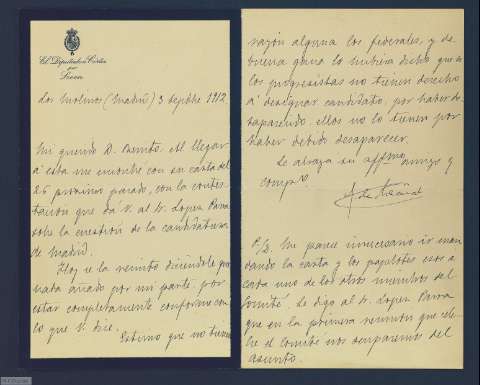 El Diputado a Cortes
por
Lucena
Los Molinos (Madrid) 3 sepbre 1912
Mi querido D. Benito. Al llegar
a esta me encontre con su carta del
26 proximo pasado, con la contes-
tacion que da V. al Sr. Lopez Parra
sobre la cuestión de la candidatura
de Madrid.
Hoy se la remito diciéndole que
nada añado por mi parte, por
estar completamente conforme con
lo que V. dice.
Estimo que no tienen
razón alguna los federales, y de
buena gana lo hubiera dicho que si
los progresistas no tienen derecho
a designar candidato, por haber de-
saparecido, ellos no lo tienen por
haber debido desaparecer.
Le abraza su affmo amigo y
compº
P/D. Me parece innecesario ir man-
dando la carta y los papelotes esos a
cada uno de los otros miembros del
Comité. Le digo al Sr. Lopez Parra
que en la primera reunion que cele-
bre el Comité nos ocuparemos del
asunto.